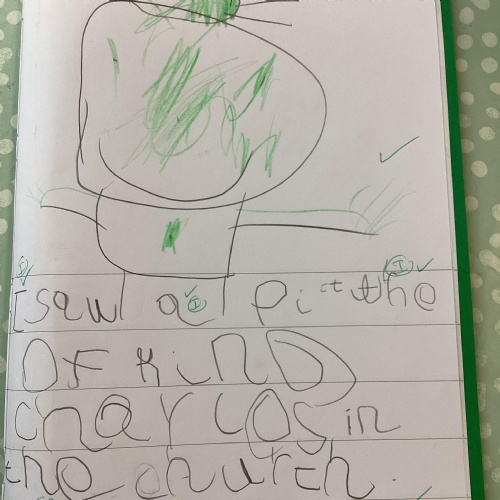 I saw a pictthe
OF KiND
charlos in
the church.